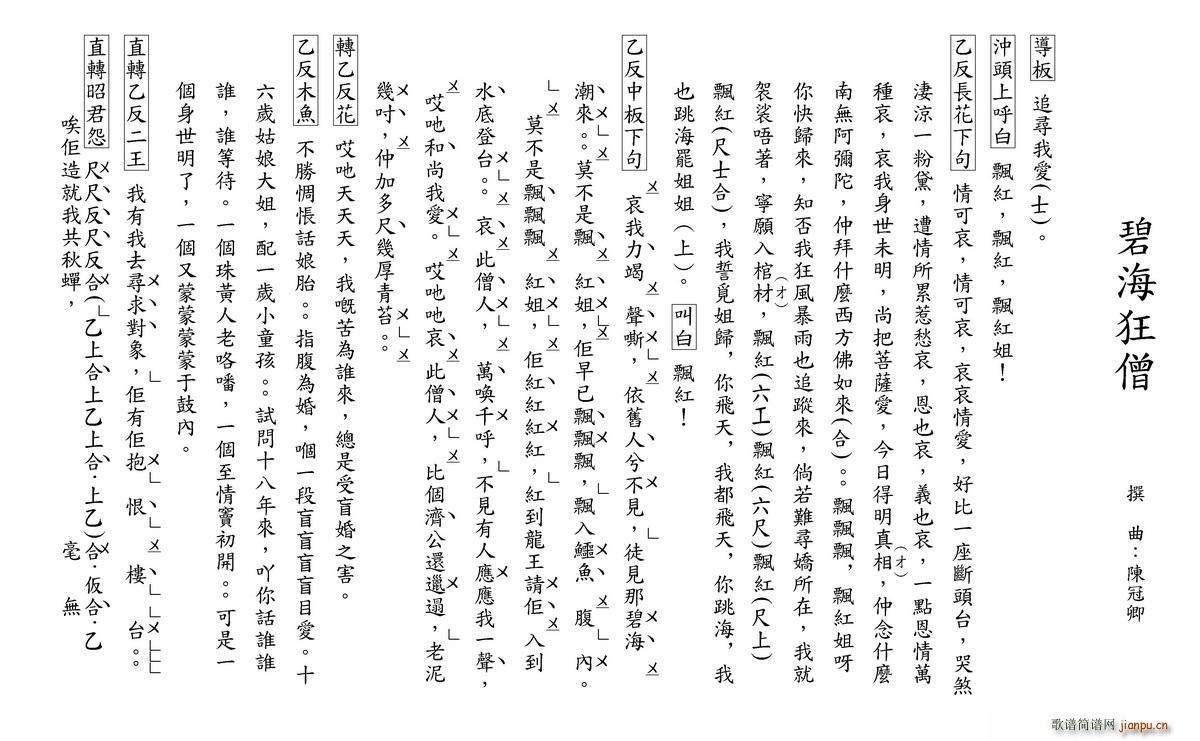 碧海狂僧
撰 曲：陳冠卿
導板 追尋我愛(士)。
沖頭上呼白 飄紅，飄紅，飄紅姐！
乙反長花下句 情可哀，情可哀，哀哀情愛，好比一座斷頭台，哭煞
淒涼一粉黛，遭情所累惹愁哀，恩也哀，義也哀，一點恩情萬
種哀，哀我身世未明，尚把菩薩愛，今日得明真相(才)，仲念什麼
南無阿彌陀，仲拜什麼西方佛如來(合)。。飄飄飄，飄紅姐呀
你快歸來，知否我狂風暴雨也追蹤來，倘若難尋嬌所在，我就
袈裟唔著，寧願入棺材(才)，飄紅(六工)飄紅(六尺)飄紅(尺上)
飄紅(尺士合)，我誓覓姐歸，你飛天，我都飛天，你跳海，我
也跳海罷姐姐（上）。 叫白 飄紅！
乙反中板下句 哀我力竭 聲嘶，依舊人兮不見，徒見那碧海
潮來。。莫不是飄 紅姐，佢早已飄飄飄，飄入鱷魚 腹 內。
莫不是飄飄飄 紅姐，佢紅紅紅，紅到龍王請佢 入到
水底登台。。哀 此僧人， 萬喚千呼，不見有人應應我一聲，
哎吔和尚我愛。哎吔吔哀 此僧人，比個濟公還邋遢，老泥
幾吋，仲加多尺幾厚青苔。。
轉乙反花 哎吔天天天，我嘅苦為誰來，總是受盲婚之害。
乙反木魚 不勝惆悵話娘胎。。指腹為婚，嗰一段盲盲盲盲目愛。十
六歲姑娘大姐，配一歲小童孩。。試問十八年來，吖你話誰誰
誰，誰等待。一個珠黃人老咯噃，一個至情竇初開。。可是一
個身世明了，一個又蒙蒙蒙蒙于鼓內。
直轉乙反二王 我有我去尋求對象，佢有佢抱 恨 樓 台。。
直轉昭君怨 尺尺反尺反合(乙上合上乙上合·上乙)合·仮合·乙
唉佢造就我共秋蟬， 毫 無
歌谱简谱网 jianpu.cn